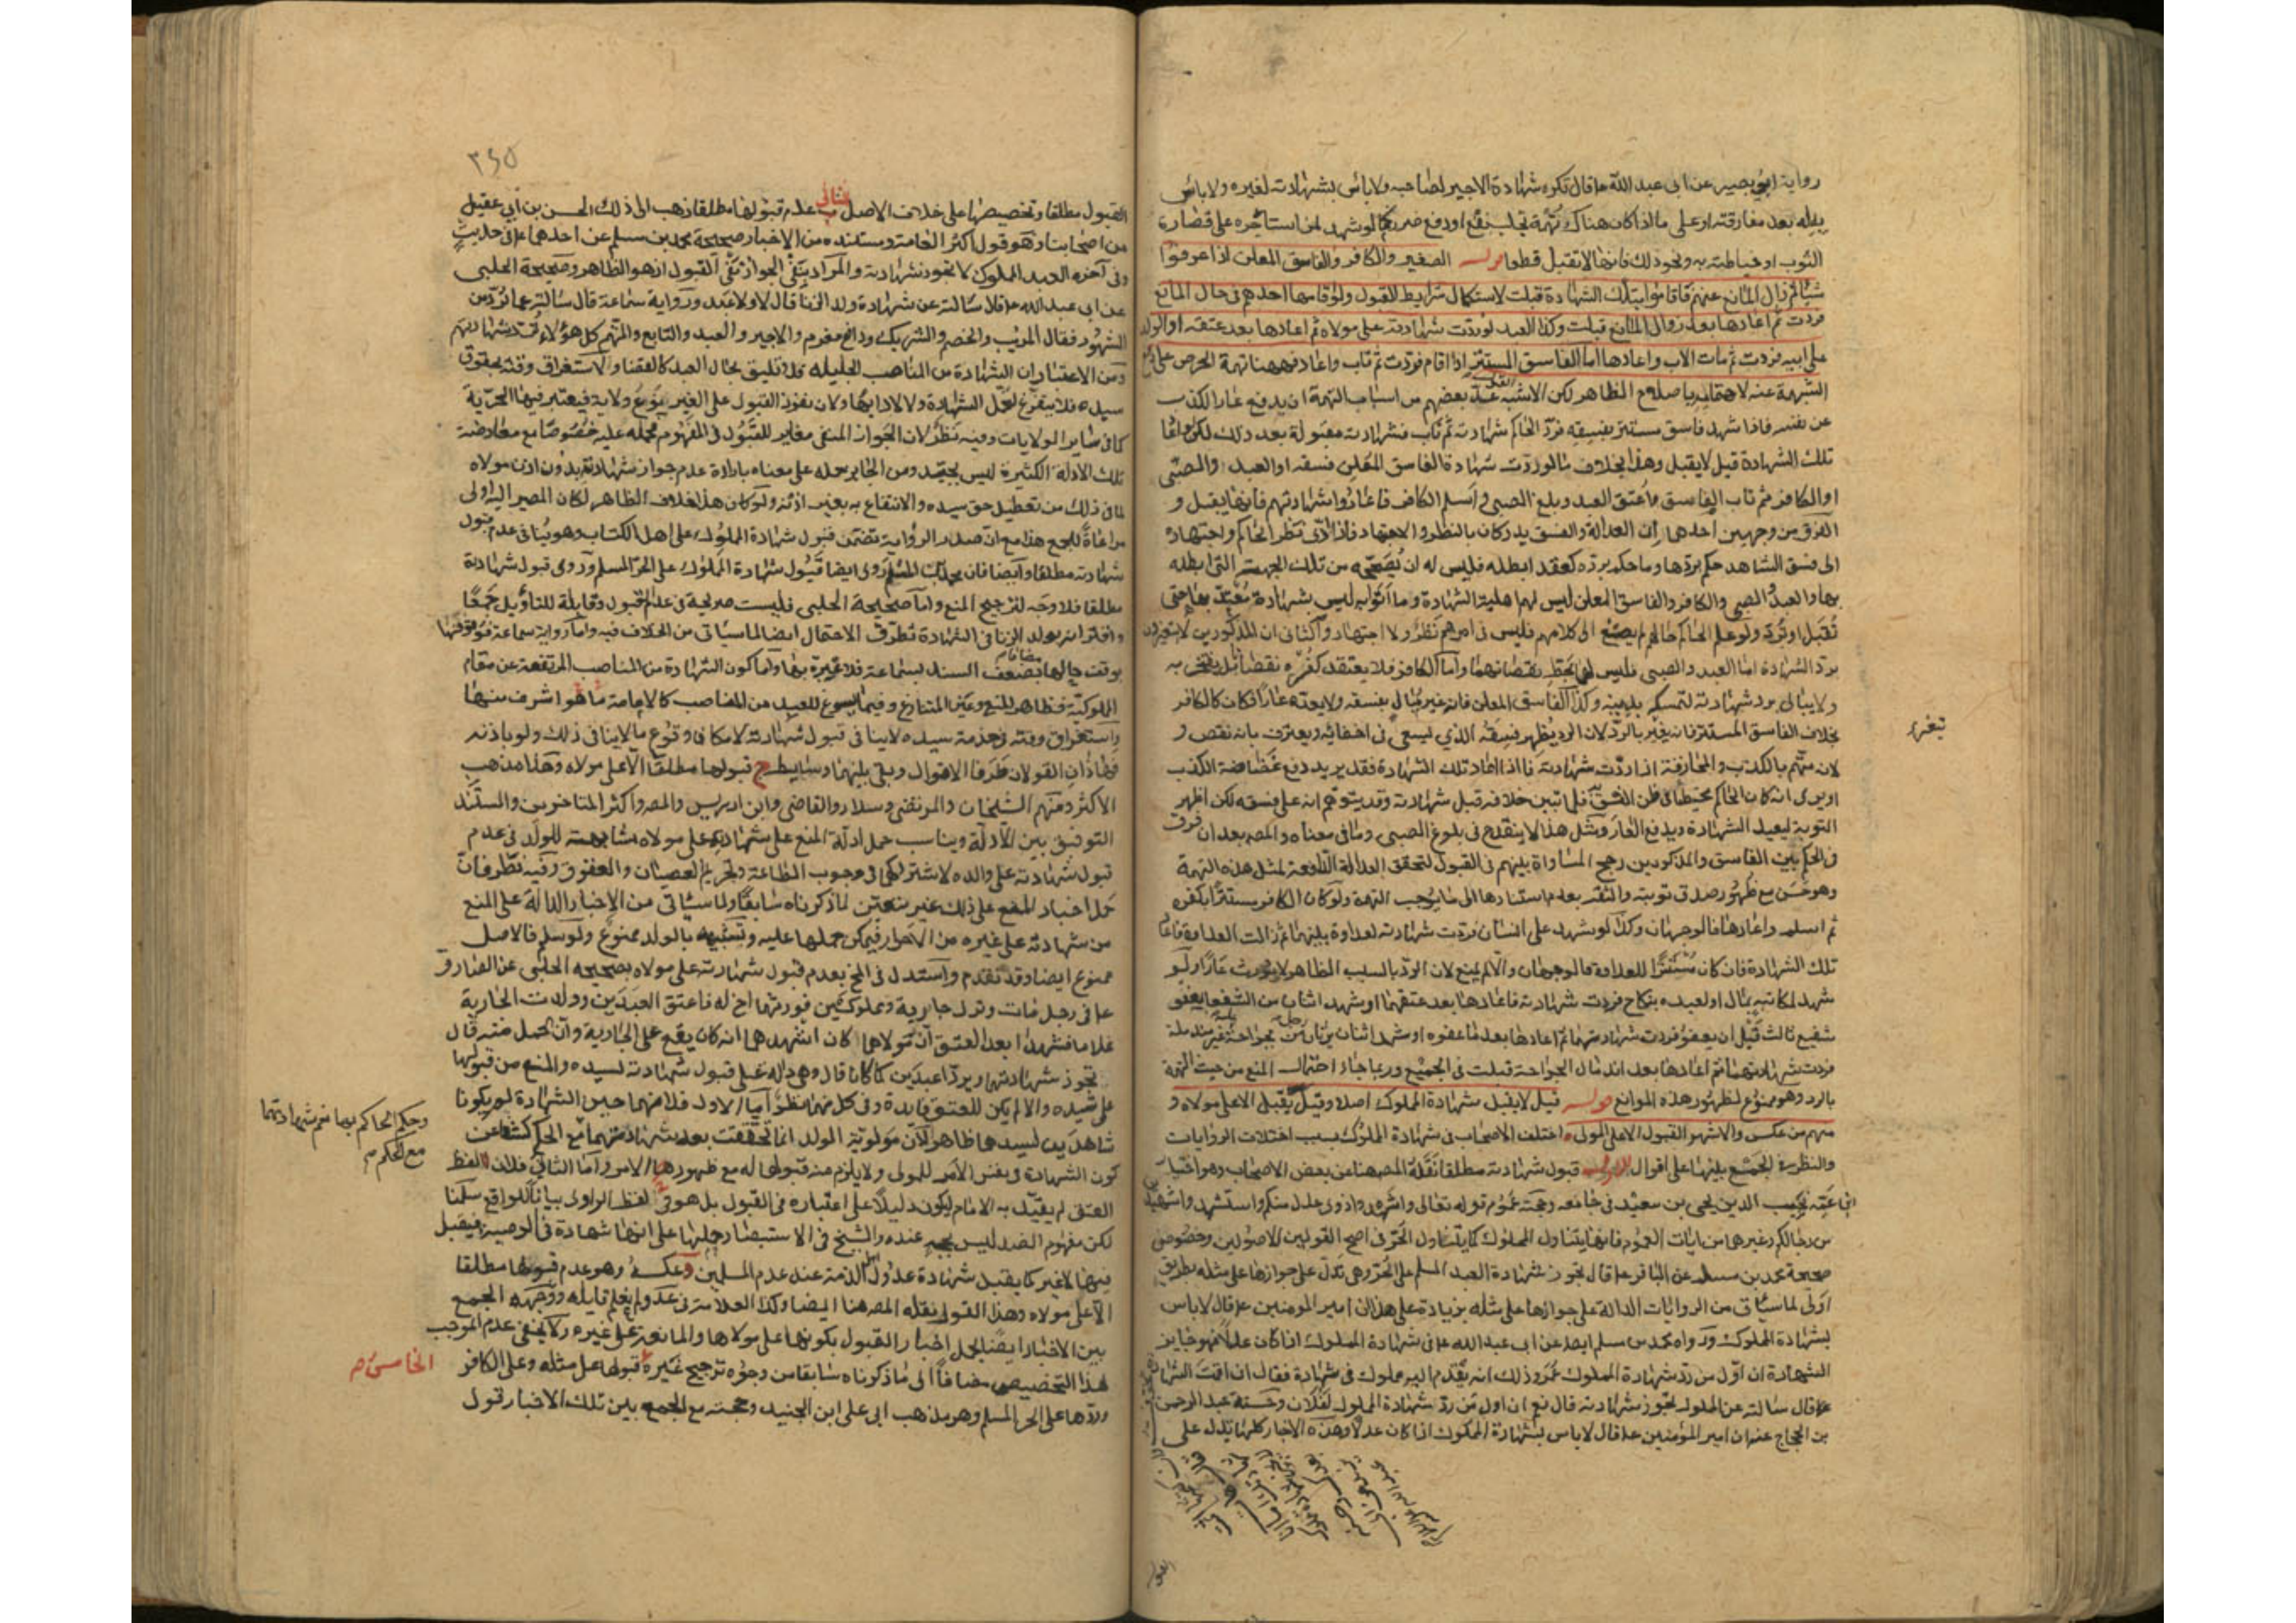 رواية ابي بصير عن ابي عبد الله ع قال تكره شهادة الاجير لصاحبه ولا باس بشهادته لغيره ولا باس
به له بعد مفارقته او على ما اذا كان هناك تهمة بجلب نفع او دفع ضرر كما لو شهد لمن استاجره على قصارة
الثوب او خياطته به ونحو ذلك فانها لا تقبل قطعا قوله الصغير والكافر والفاسق المعلن اذا عرفوا
شيئا ثم زال المانع عنهم فاقاموا بتلك الشهادة قبلت لاستكمال شرايط القبول ولو اقامها احدهم في حال المانع
فردت ثم اعادها بعد زوال المانع قبلت وكذا العبد لو ردت شهادته على مولاه ثم اعادها بعد عتقه او الولد
على ابيه فردت ثم مات الاب واعادها اما الفاسق المستتر اذا اقام فردت ثم تاب واعاد فههنا تهمة الحرص على
الشبهة عنه لاهتمامه باصلاح الظاهر لكن الاشبه القبول عد بعضهم من اسباب التهمة ان يدفع عار الكذب
عن نفسه فاذا شهد فاسق مستتر بفسقه فرد الحاكم شهادته ثم تاب فشهادته مقبولة بعد ذلك لكن
تلك الشهادة قيل لا يقبل وهذا بخلاف ما لو ردت شهادة الفاسق المعلن فسقه او العبد والصبي
او الكافر ثم تاب الفاسق واعتق العبد وبلغ الصبي واسلم الكافر فاعادوا شهادتهم فانها يقبل و
الفرق من وجهين احدهما ان العدالة والفسق يدركان بالنظر والاجتهاد فاذا ادى نظر الحاكم واجتهاده
الى فسق الشاهد حكم بردها وما حكم برده كعقد ابطله فليس له ان يصححه من تلك الجهة التي ابطله
بها والعبد والصبي والكافر والفاسق المعلن ليس لهم اهلية الشهادة وما اتوا به ليس بشهادة معتد بها حتى
تقبل او ترد ولو علم الحاكم حالهم لم يصغ الى كلامهم فليس في امرهم نظر ولا اجتهاد والثاني ان المذكورين لا يتعيرون
برد الشهادة اما العبد والصبي فليس نقصانهما واما الكافر فلا يعتقد كفره نقصا بل يفتخر به
ولا يبالي برد شهادته لتمسكه بدينه وكذا الفاسق المعلن فانه غير مبال بفسقه ولا يعده عارا فكان كالكافر
بخلاف الفاسق المستتر فانه يتغير بالرد لان الرد يظهر فسقه الذي يسعى في اخفائه ويعترف بانه نقص و
لانه متهم بالكذب والمجازفة اذا ردت شهادته فاذا اعاد تلك الشهادة فقد يريد دفع غضاضة الكذب
او يرى انه كان الحاكم مخطئا في ظن الفسق فلما تبين خلافه قبل شهادته وقد يتوهم انه على فسقه لكن اظهر
التوبة ليعيد الشهادة ويدفع العار ومثل هذا لا ينقدح في بلوغ الصبي وما في معناه والمص بعد ان فرق
في الحكم بين الفاسق والمذكورين رجح المساواة بينهم في القبول لتحقق العدالة الدافعة لمثل هذه التهمة
وهو حسن مع ظهور صدق توبته والثقة بعدم استنادها الى ما يوجب التهمة ولو كان الكافر مستترا بكفره
ثم اسلم واعادها فالوجهان وكذا لو شهد على انسان فردت شهادته لعداوة بينهما ثم زالت العداوة فاعاد
تلك الشهادة فان كان مستترا للعداوة فالوجهان والا لم يمنع لان الرد بالسبب الظاهر لا يورث عارا ولو
شهد لمكاتبه بمال او لعبده بنكاح فردت شهادته فاعادها بعد عتقهما او شهد اثنان من الشفعا بعفو
شفيع ثالث قبل ان يعفو فردت شهادتهما ثم اعادها بعد ما عفوه او شهد اثنان يرثان من رجل بجراحة غير مندملة
فردت شهادتهما ثم اعادها بعد اندمال الجراحة قبلت في الجميع وربما جاء احتمال المنع من حيث التهمة
بالرد وهو ممنوع لظهور هذه الموانع قوله قيل لا يقبل شهادة المملوك اصلا وقيل يقبل الا على مولاه و
منهم من عكس والاشهر القبول الا على المولى اختلف الاصحاب في شهادة المملوك بسبب اختلاف الروايات
والنظر في الجمع بينها على اقوال الاول قبول شهادته مطلقا نقله المص هنا عن بعض الاصحاب وهو اختيار
ابن عمه نجيب الدين يحيى بن سعيد في جامعه وحجته عموم قوله تعالى واشهدوا ذوي عدل منكم واستشهدوا شهيدين
من رجالكم وغيرها من ايات العموم فانها يتناول المملوك كما يتناول الحر في اصح القولين للاصوليين وخصوص
صحيحة محمد بن مسلم عن الباقر ع قال تجوز شهادة العبد المسلم على الحر وهي تدل على جوازها على مثله بطريق
اولى لما سياتي من الروايات الدالة على جوازها على مثله بزيادة على هذا ان امير المومنين ع قال لا باس
بشهادة المملوك ورواه محمد بن مسلم ايضا عن ابي عبد الله ع في شهادة المملوك اذا كان عدلا فهو جايز
الشهادة ان اول من رد شهادة المملوك عمر وذلك انه تقدم اليه مملوك في شهادة فقال ان اقمت الشهادة
ع قال سالته عن المملوك تجوز شهادته قال نعم ان اول من رد شهادة المملوك لفلان وحسنة عبد الرحمن
بن الحجاج عنه ان امير المؤمنين ع قال لا باس بشهادة المملوك اذا كان عدلا وهذه الاخبار كلها يدل على
يتغير
٣٤٥
القبول مطلقا وتخصيصها على خلاف الاصل الثاني عدم قبولها مطلقا ذهب الى ذلك الحسن بن ابي عقيل
من اصحابنا وهو قول اكثر العامة ومستنده من الاخبار صحيحة محمد بن مسلم عن احدهما ع في حديث
وفي آخره العبد المملوك لا تجوز شهادته والمراد بنفي الجواز نفي القبول اذ هو الظاهر وصحيحة الحلبي
عن ابي عبد الله ع قال سالته عن شهادة ولد الزنا قال لا ولا عبد ورواية سماعة قال سالته عما يرد من
الشهود فقال المريب والخصم والشريك ودافع مغرم والاجير والعبد والتابع والمتهم كل هؤلاء ترد شهاداتهم
ومن الاعتبار ان الشهادة من المناصب الجليلة فلا تليق بحال العبد كالقضا ولاستغراق وقته بحقوق
سيده فلا يتفرغ لتحمل الشهادة ولا لادائها ولان نفوذ القبول على الغير نوع ولاية فيعتبر فيها الحرية
كما في ساير الولايات وفيه نظر لان الجواز المنفي مغاير للقبول في المفهوم فحمله عليه خصوصا مع معارضة
تلك الادلة الكثيرة ليس بجيد ومن الجايز حمله على معناه بارادة عدم جواز شهادته بدون اذن مولاه
لما في ذلك من تعطيل حق سيده والانتفاع به بغير اذنه ولو كان هذا خلاف الظاهر لكان المصير اليه اولى
مراعاة للجمع هذا مع ان صدر الرواية تضمن قبول شهادة المملوك على اهل الكتاب وهو ينافي عدم قبول
شهادته مطلقا وايضا فان محمد بن مسلم روى ايضا قبول شهادة المملوك على الحر المسلم وروى قبول شهادته
مطلقا فلا وجه لترجيح المنع واما صحيحة الحلبي فليست صريحة في عدم القبول وقابلة للتاويل جمعا
واقترانه بولد الزنا في الشهادة تطرق الاحتمال ايضا لما سياتي من الخلاف فيه واما رواية سماعة فموقوفة
بوقت حالها مضافا بضعف السند بسماعة فلا عبرة بها واما كون الشهادة من المناصب المرتفعة عن مقام
المملوكية فظاهر المنع وعين المتنازع وفيما يسوغ للعبد من المناصب كالامامة ما هو اشرف منها
واستغراق وقته بخدمة سيده لا ينافي قبول شهادته لامكان وقوع ما لا ينافي ذلك ولو باذنه
فهذان القولان طرفا الاقوال وبقي بينهما وسايط ج قبولها مطلقا الا على مولاه وهذا مذهب
الاكثر ومنهم الشيخان والمرتضى وسلار والقاضي وابن ادريس والمص واكثر المتاخرين والسند
التوفيق بين الادلة ويناسب حمل ادلة المنع على شهادته على مولاه مشابهته للولد في عدم
قبول شهادته على والده لاشتراكهما في وجوب الطاعة وتحريم العصيان والعقوق وفيه نظر فان
حمل اخبار المنع على ذلك غير متعين لما ذكرناه سابقا ولما سياتي من الاخبار الدالة على المنع
من شهادته على غيره من الاحرار فيمكن حملها عليه وتشبيهه بالولد ممنوع ولو سلم فالاصل
ممنوع ايضا وقد تقدم واستدل في المخ بعدم قبول شهادته على مولاه بصحيحة الحلبي عن الصادق
ع في رجل مات وترك جارية ومملوكين فورثهما اخ له فاعتق العبدين وولدت الجارية
غلاما فشهدا بعد العتق ان مولاهما كان اشهدهما انه كان يقع على الجارية وان الحمل منه قال
تجوز شهادتهما ويردا عبدين كما كانا قال وهي دالة على قبول شهادته لسيده والمنع من قبولها
على سيده والا لم يكن للعتق فايدة وفي كل منهما نظر اما الاول فلانهما حين الشهادة لم يكونا
شاهدين لسيدهما ظاهرا لان مولوية الولد انما تحققت بعد شهادتهما مع الحكم كشفا عن
كون الشهادة في نفس الامر للمولى ولا يلزم منه قبولها له مع ظهورها الامر واما الثاني فلان لفظ
العتق لم يقيد به الامام ليكون دليلا على اعتباره في القبول بل هو في لفظ الراوي بيانا للواقع سلمنا
لكن مفهوم الصفة ليس بحجة عنده والشيخ في الاستبصار حملها على انها شهادة في الوصية فيقبل
فيها لا غير كما يقبل شهادة عدول اهل الذمة عند عدم المسلمين د عكسه وهو عدم قبولها مطلقا
الا على مولاه وهذا القول نقله المص هنا ايضا وكذا العلامة في عد ولم يعلم قايله ووجهه الجمع
بين الاخبار ايضا بحمل اخبار القبول بكونها على مولاها والمانعة على غيره ولا يخفى عدم الموجب
لهذا التخصيص مضافا الى ما ذكرناه سابقا من وجوه ترجيح غيره قبولها على مثله وعلى الكافر
وردها على الحر المسلم وهو مذهب ابي علي ابن الجنيد وحجته مع الجمع بين تلك الاخبار تحول
وحكم الحاكم بهما نعم شهادتهما
مع الحكم
الخامس